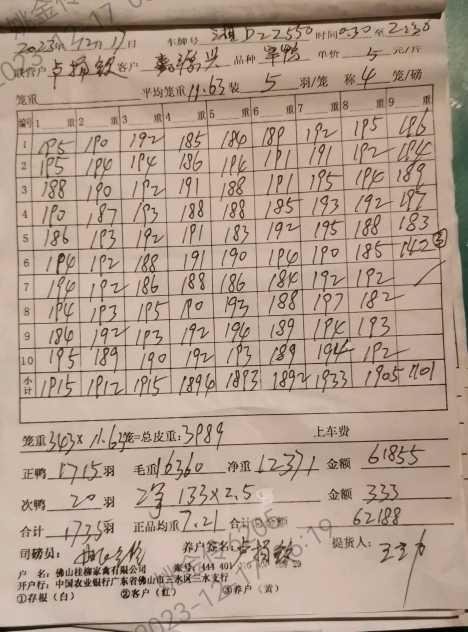 2023年12月17日 车牌号 湘D22550 时间0:30 至2:30
联营户 卢杨钦 客户 品种 单鸭 单价 5 元/斤
笼重 平均笼重11.63 装 5 羽/笼 称 4 笼/磅
编号 1 重 2 重 3 重 4 重 5 重 6 重 7 重 8 重 9 重
1 195 190 192 185 184 189 192 195 186
2 195 194 194 186 194 191 191 192 194
3 188 190 192 191 188 191 195 194 189
4 190 187 193 188 188 185 193 192 197
5 186 193 192 191 183 192 195 188 183
6 194 192 188 191 190 194 190 185 142
7 194 192 186 188 186 184 192 192
8 194 193 195 190 193 188 197 182
9 184 192 193 192 194 189 194 193
10 195 189 190 192 193 189 194 192
小计 1915 1912 1915 1894 1893 1892 1933 1905 1101
笼重343×11.63笼=总皮重:3989 上车费
正鸭 1715 羽 毛重16360 净重12371 金额 61855
次鸭 20 羽 133×2.5 金额 333
合计 1735 羽 正品均重 7.21 合计 62188
司磅员: 养户签名:卢杨钦 提货人:
户 名:佛山桂柳家禽有限公司 账号:444 401
开户行:中国农业银行广东省佛山市三水区三水支行
①存根(白) ②客户(红) ③养户(黄)